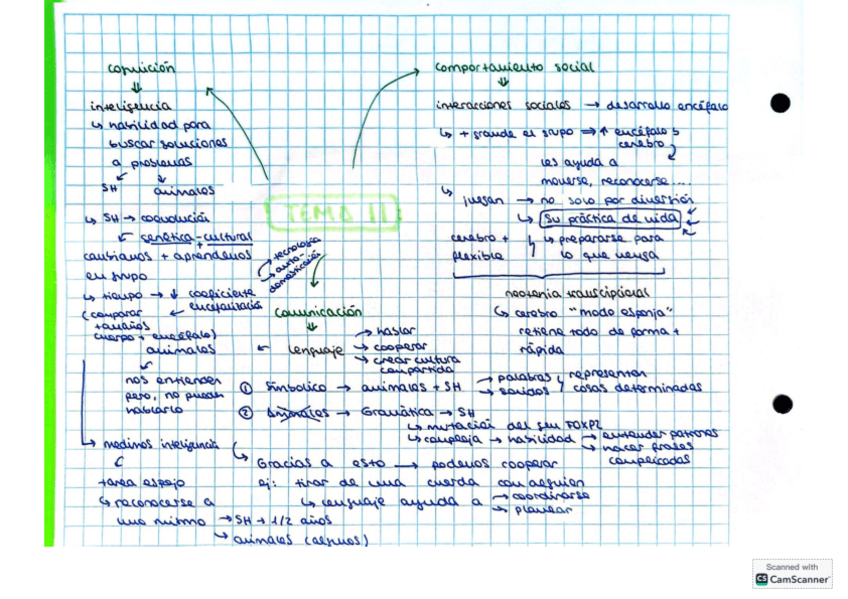 TEMA 11
cognición
⇓
inteligencia
↳ habilidad para
buscar soluciones
a problemas
SH animales
↳ SH → coevolución
genética-cultural
+
cambiamos + aprendemos
en grupo
→ tecnología
→ auto-
domesticación
↳ tiempo → ↓ coeficiente
encefalización
(comparar
tamaños
cuerpo + encéfalo)
animales
nos entienden
pero, no pueden
hablarlo
↳ medimos inteligencia
tarea espejo
↳ reconocerse a
uno mismo → SH + 1/2 años
↳ animales (algunos)
comportamiento social
⇓
interacciones sociales → desarrollo encéfalo
↳ + grande el grupo ⇒ ↑ encéfalo y
cerebro
les ayuda a
moverse, reconocerse....
↳ juegan → no solo por diversión
↳ su práctica de vida
cerebro +
flexible
↳ prepararse para
lo que venga
neotenia transcripcional
↳ cerebro "modo esponja"
retiene todo de forma +
rápida
comunicación
⇓
lenguaje
→ hablar
→ cooperar
→ crear cultura
compartida
① Simbólico → animales + SH → palabras y representan
→ sonidos cosas determinadas
② Animales → Gramática → SH
↳ mutación del gen FOXP2
↳ compleja → habilidad → entender patrones
→ hacer frases
complicadas
↳ Gracias a esto → podemos cooperar
ej: tirar de una cuerda con alguien
↳ lenguaje ayuda a → coordinarse
→ planear
Scanned with
CS CamScanner